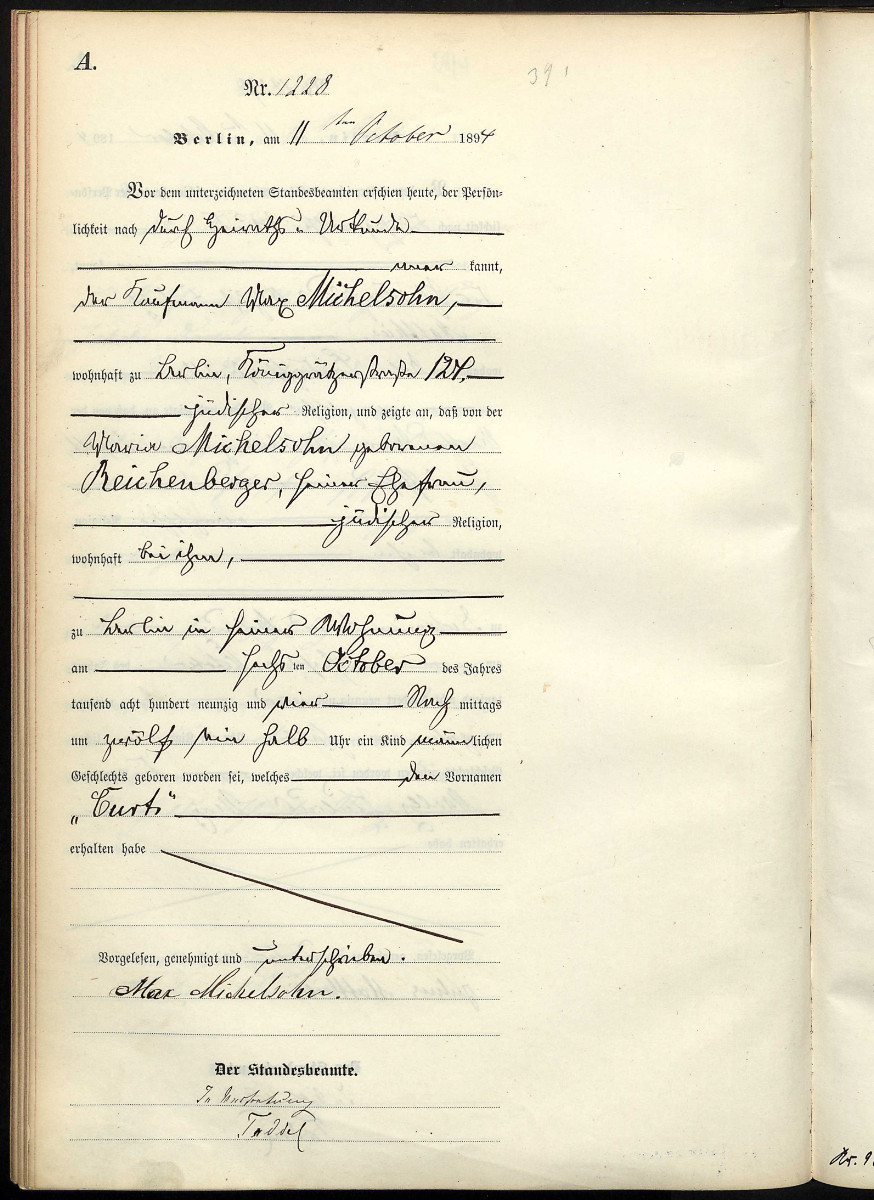 A.
391
Nr. 1228
Berlin, am 11 ten October 1894
Vor dem unterzeichneten Standesbeamten erschien heute, der Persön-
lichkeit nach durch Heiraths-Urkunde
kannt,
der Kaufmann Max Michelsohn,
wohnhaft zu Berlin, Königgrätzerstraße 124.
jüdischer Religion, und zeigte an, daß von der
Maria Michelsohn geborenen
Reichenberger, seiner Ehefrau,
jüdischer Religion,
wohnhaft bei ihm,
zu Berlin in seiner Wohnung
am sechs ten October des Jahres
tausend acht hundert neunzig und vier Nach mittags
um zwölf ein halb Uhr ein Kind männlichen
Geschlechts geboren worden sei, welches den Vornamen
„Curt“
erhalten habe
Vorgelesen, genehmigt und unterschrieben.
Max Michelsohn.
Der Standesbeamte.
In Vertretung
Nr. 9